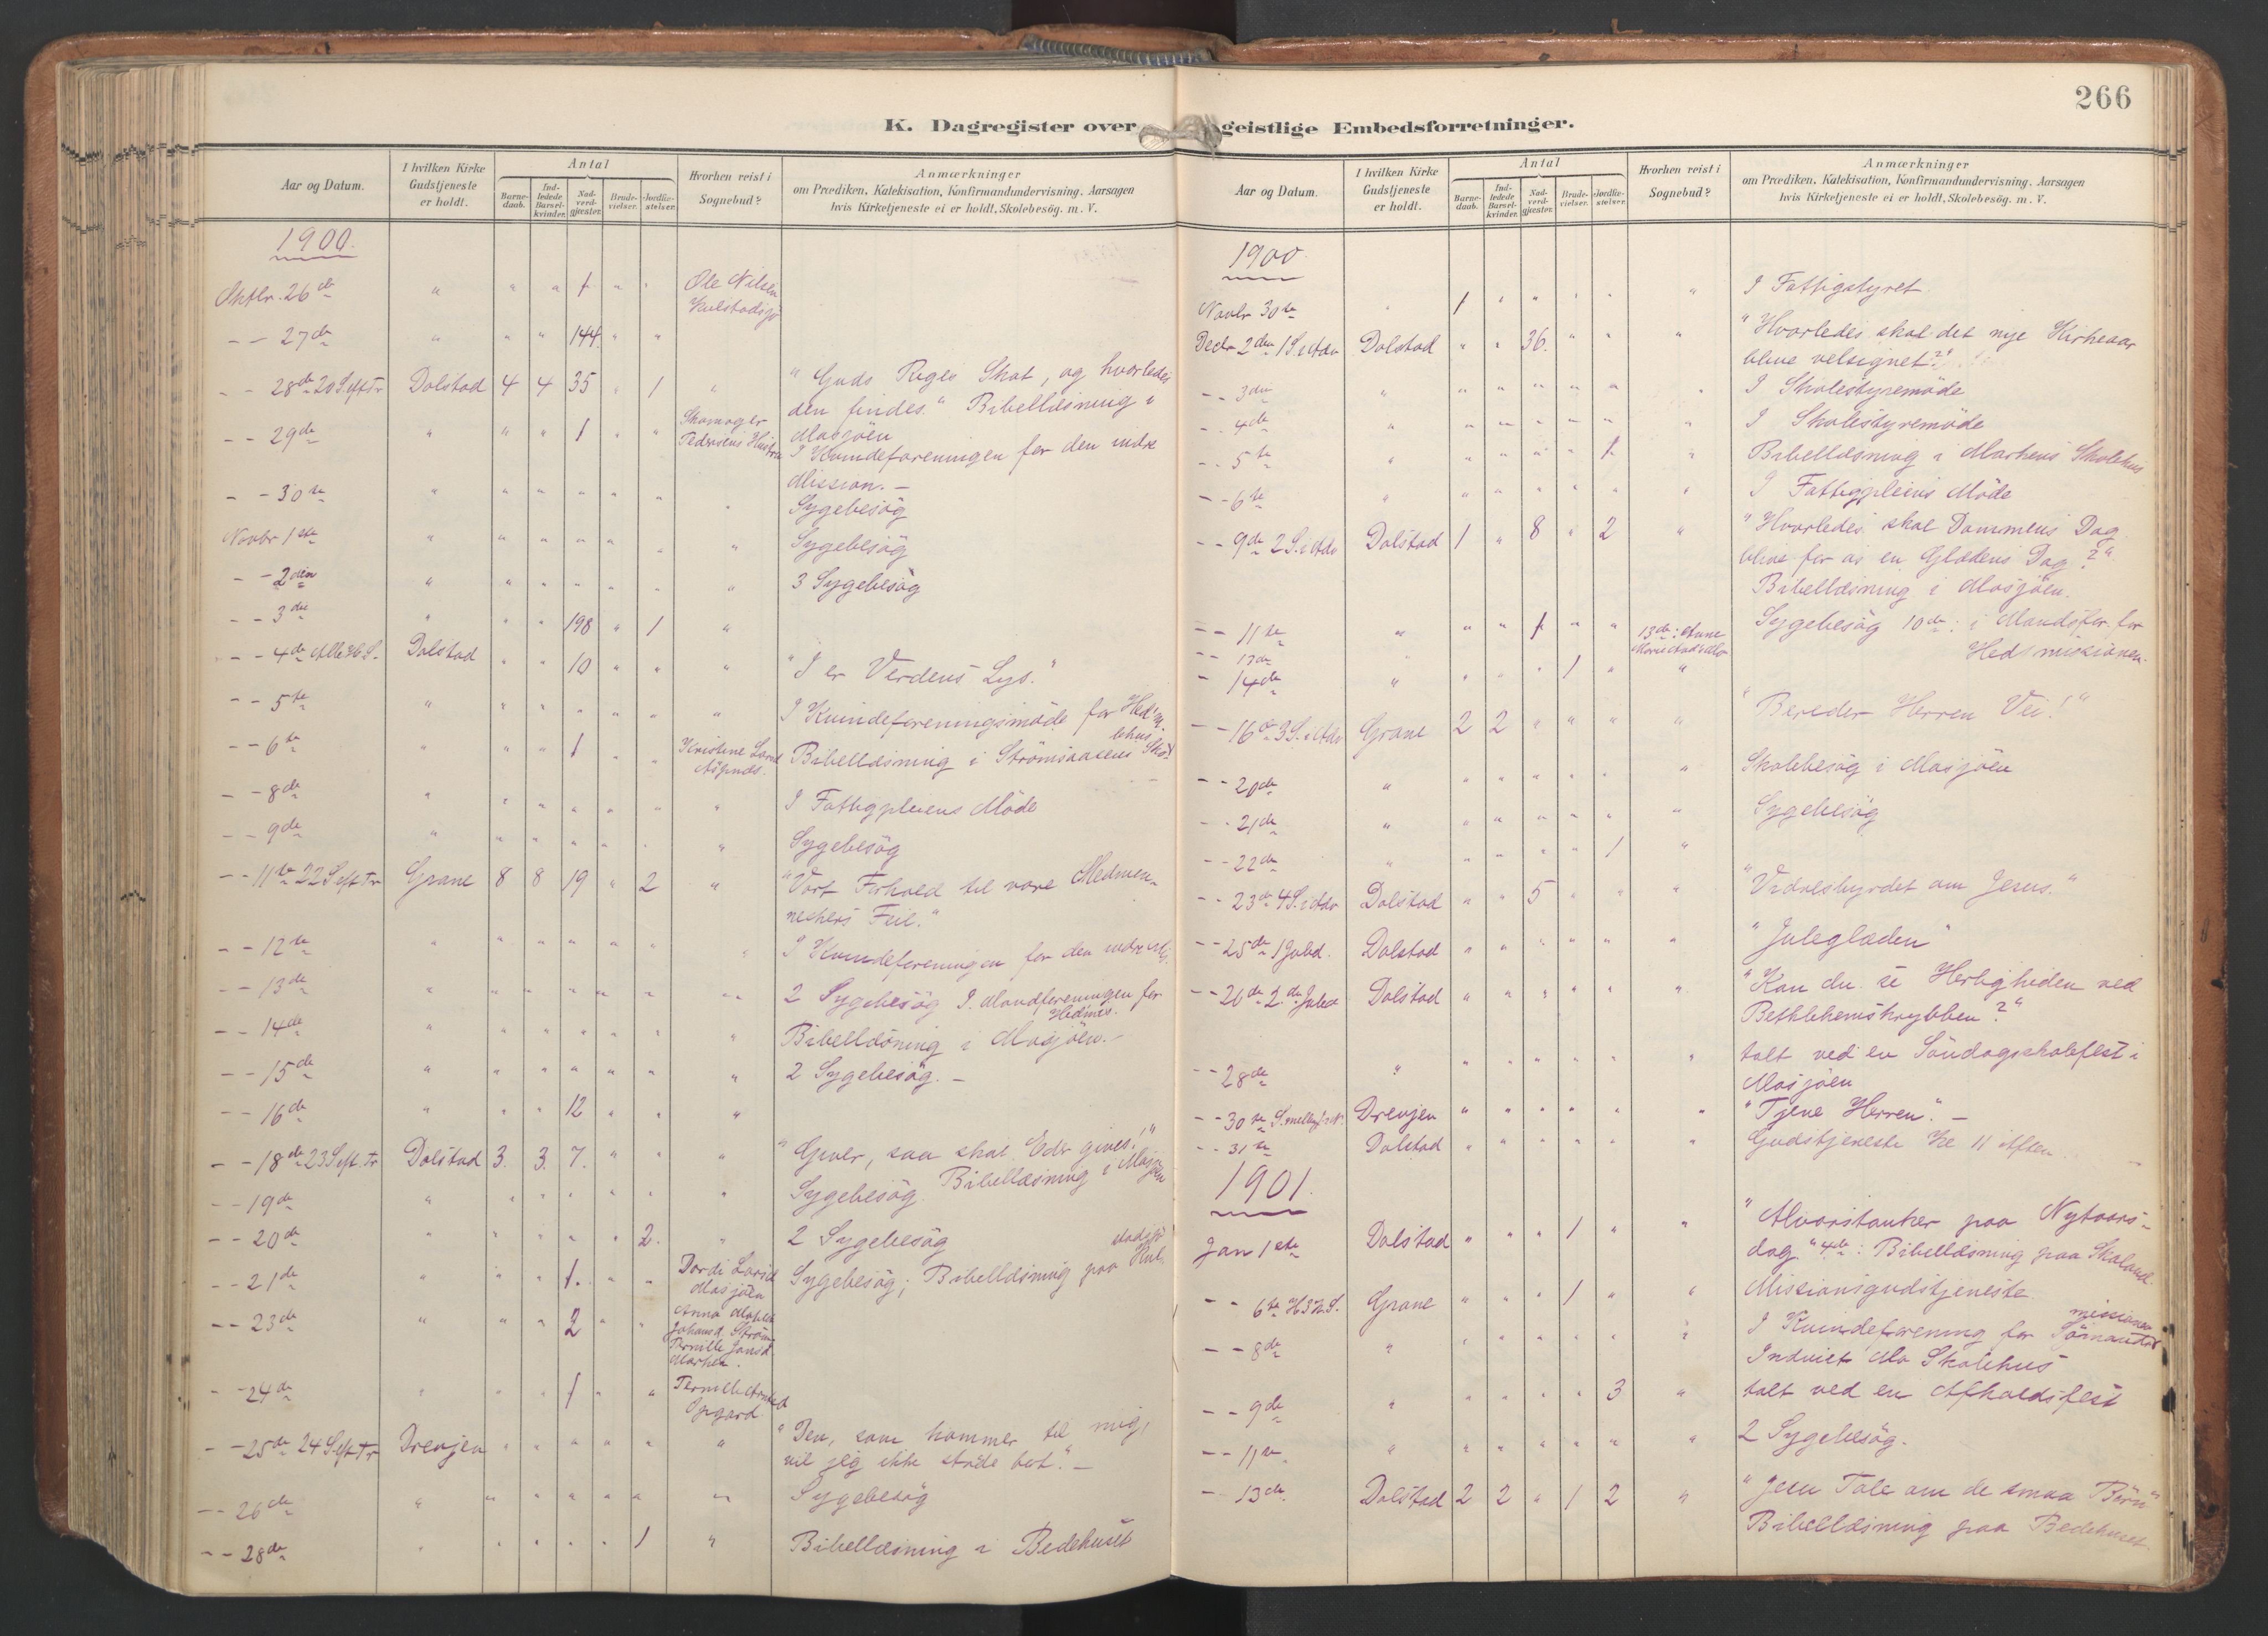 266
K. Dagregister over geistlige Embedsforretninger.
Aar og Datum. I hvilken Kirke Gudstjeneste er holdt. Antal Barnedaab. Indledede Barselkvinder. Nadverdgjæster. Brudevielser. Jordfæstelser. Hvorhen reist i Sognebud? Anmærkninger
om Prædiken, Katekisation, Konfirmandundervisning, Aarsagen
hvis Kirketjeneste ei er holdt, Skolebesög. m. V.
1900.
Oktbr. 26de " " " 1 " " Ole Nilsen
-- 27de " " " 144 " "
-- 28de 20 S eft Tr Dolstad 4 4 35 " 1 " "Guds Riges Skat, og hvorledes
den findes." Bibellæsning i
Mosjöen
-- 29de " " " 1 " " Skomager Pedersens Hustru I Kvindeforeningen for den indre
Mission.-
-- 30te " " " " " " " Sygebesög
Novbr 1ste " " " " " " " Sygebesög
-- 2den " " " " " " " 3 Sygebesög
-- 3die " " " 198 " 1 "
-- 4de Alle H. S. Dolstad " " 10 " " " "I er Verdens Lys."
-- 5te " " " " " " " I Kvindeforeningsmöde for Hedm.
-- 6te " " " 1 " " Kristine Bibellæsning i Skolehus
-- 8de " " " " " " " I Fattigpleiens Möde
-- 9de " " " " " " " Sygebesög
-- 11te 22 S eft Tr Grane 8 8 19 " 2 " "Vort Forhold til vore Medmen-
neskers Feil."
-- 12te " " " " " " " I Kvindeforeningen for den indre M.
-- 13de " " " " " " " 2 Sygebesög I Mandforeningen for
Hedmis.
-- 14de " " " " " " " Bibellæsning i Mosjöen.-
-- 15de " " " " " " " 2 Sygebesög.-
-- 16de " " " 12 " " "
-- 18de 23 S eft. Tr Dolstad 3. 3. 7. " " " "Giver, saa skal Eder gives!"
Bibellæsning i Mosjöen
-- 19de " " " " " " " Sygebesög.
-- 20de " " " " " 2. " 2 Sygebesög
-- 21de " " " 1. " " Mosjöen Sygebesög; Bibellæsning paa
-- 23de " " " 2 " " Anna Johansd. Pernille Jonsd
-- 24de " " " 1 " "
-- 25de 24 S eft Tr Drevjen " " " " " " "Den, som kommer til mig,
vil jeg ikke støde bort."-
-- 26de " " " " " " " Sygebesög
-- 28de " " " " " 1 " Bibellæsning i Bedehuset
Aar og Datum. I hvilken Kirke Gudstjeneste er holdt. Antal Barnedaab. Indledede Barselkvinder. Nadverdgjæster. Brudevielser. Jordfæstelser. Hvorhen reist i Sognebud? Anmærkninger
om Prædiken, Katekisation, Konfirmandundervisning, Aarsagen
hvis Kirketjeneste ei er holdt, Skolebesög. m. V.
1900.
Novbr 30te " 1 " " " " " I Fattigstyret.
Decbr 2den 1 S. i Adv Dolstad " " 36. " " " "Hvorledes skal det nye Kirkeaar
blive velsignet?"
-- 3die " " " " " " " I Skolestyremöde
-- 4de " " " " " " " I Skolestyremöde
-- 5te " " " " " 1 " Bibellæsning i Skolehus
-- 6te " " " " " " " I Fattigpleiens Möde
-- 9de 2 S. i Adv Dolstad 1 " 8 " 2 " "Hvorledes skal Dommens Dag
blive for os en Glædens Dag?"
Bibellæsning i Mosjöen.
-- 11te " " " 1 " " 13de: Sygebesög 10de: i Mandsfor. for
Hedmissionen.
-- 13de
- 14de " " " " 1 " "
-- 16de 3 S. i Adv Grane 2 2 " " " " "Bereder Herren Vei!"
-- 20de " " " " " " " Skolebesög i Mosjöen
-- 21de " " " " " " " Sygebesög
-- 22de " " " " " 1 "
-- 23de 4 S. i Adv Dolstad " " 5 " " " "Vidnesbyrdet om Jesus."
-- 25de 1 Juled. Dolstad " " " " " " "Juleglæden"
-- 26de 2. de Juled Dolstad " " " " " " "Kan du se Herligheden ved
Bethlehemskrybben?"
-- 28de " " " " " " " talt ved en Söndagsskolefest i
Mosjöen
-- 30te Drevjen " " " " " " "Tjene Herren".-
-- 31te Dolstad " " " " " " Gudstjeneste Kl 11 Aften.
1901.
Jan 1ste Dolstad " " " 1 " " "Alvorstanker paa Nytaars-
dag." 4de: Bibellæsning paa
-- 6te Grane " " " 1 " " Missionsgudstjeneste.
-- 8de " " " " " " " I Kvindeforening for Sömands
missionen
Indviet Mo Skolehus
-- 9de " " " " " 3 " talt ved en Afholdsfest
-- 11te " " " " " " " 2 Sygebesög.
-- 13de. Dolstad 2 2 " 1 2 " "Jesu Tale om de smaa Börn"
Bibellæsning paa Bedehuset.